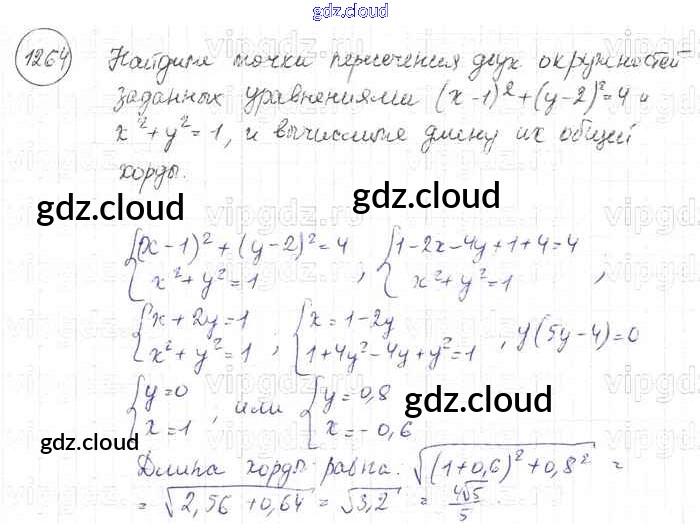 gdz.cloud
1264 Найдите точки пересечения двух окружностей
заданных уравнениями (x-1)²+(y-2)²=4 и
x²+y²=1, и вычислите длину их общей
хорды.
gdz.cloud gdz.cloud
{(x-1)²+(y-2)²=4 {1-2x-4y+1+4=4
{x²+y²=1 , {x²+y²=1 ,
{x+2y=1 {x=1-2y
{x²+y²=1 ; {1+4y²-4y+y²=1 , y(5y-4)=0
{y=0 {y=0,8
{x=1 , или {x=-0,6
gdz.cloud gdz.cloud
Длина хорды равна. √((1+0,6)²+0,8²) =
= √(2,56+0,64) = √3,2 = 4√5/5